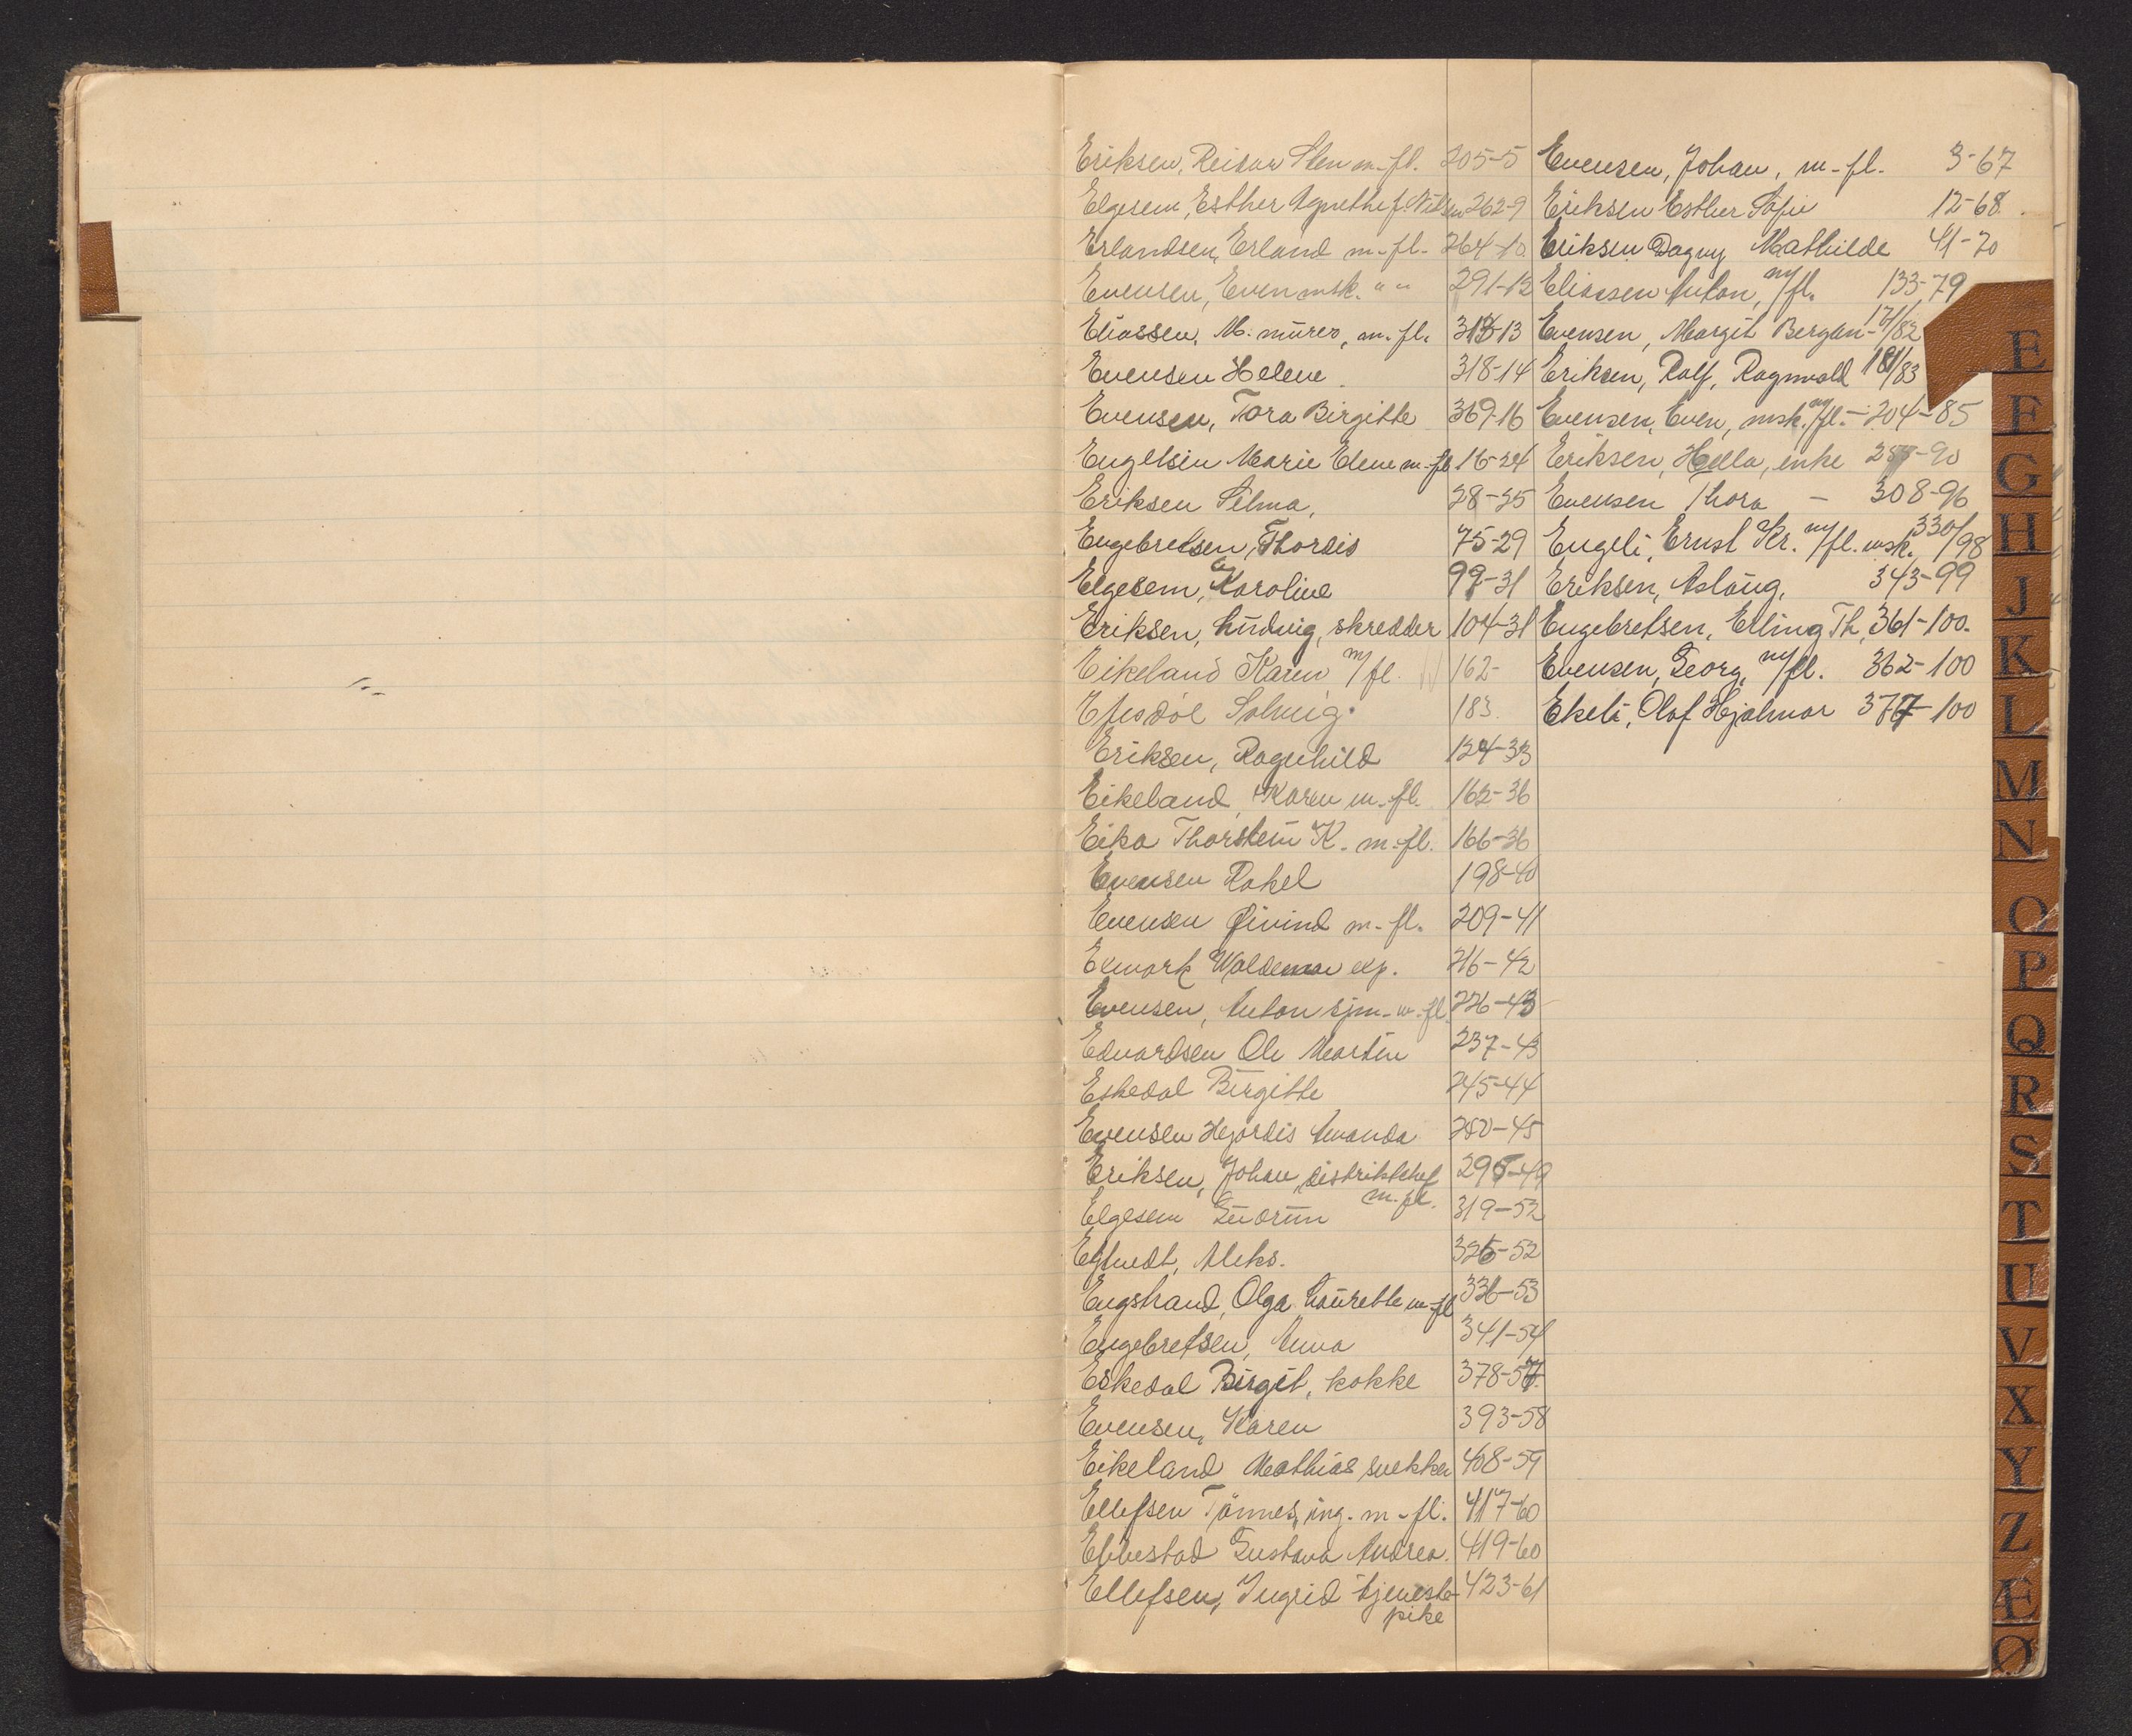 Eriksen, Reidar Sten m. fl. 205-5
Elgesem, Esther Agnethe f. Nilsen 262-9
Erlandsen, Erland m. fl. 264-10
Evensen, Even msk. " " 291-12
Eliassen, M. murer, m. fl. 313-13
Evensen Helene 318-14
Evensen, Tora Birgitte 369-16
Engelsin Marie Elene m-fl 16-24
Eriksen Selma, 28-25
Engebretsen, Thordis 75-29
Elgesem, Karoline 99-31
Eriksen, Ludvig, skredder 104-31
Eikeland Karen m/fl. 162-
Solveig 183.
Eriksen, Ragnhild 124-33
Eikeland, Karen m. fl. 162-36
Eika Thorstein K. m-fl. 166-36
Evensen Rakel 198-40
Evensen Øivind m-fl. 209-41
Exmark Waldemar exp. 216-42
Evensen, Anton sjm-m-fl. 226-43
Edvardsen Ole Martin 237-43
Eskedal Birgitte 245-44
Evensen Hjørdis Amanda 250-45
Eriksen, Johan, distriktchef m. fl. 295-49
Elgesem Gudrun 319-52
Aleks. 326-52
Engstrand, Olga Laurette m-fl 336-53
Engebretsen, Anna 341-54
Eskedal Birgit, kokke 378-57
Evensen, Karen 393-58
Eikeland Mathias snekker 408-59
Ellefsen Tønnes, ing. m-fl. 417-60
Ebbestad Gustava Andrea. 419-60
Ellefsen, Ingrid tjeneste- 423-61
pike
Evensen, Johan, m-fl. 3-67
Eriksen Esther Sofie 12-68
Eriksen Dagny Mathilde 41-70
Eliassen Anton, m/fl. 133-79
Evensen, Margit Bergan- 171/82
Eriksen, Rolf, Ragnvald 181/83
Evensen, Even, msk. m/fl. - 204-85
Eriksen, Hella, enke 257-90
Evensen Thora - 308-96
Engeli, Ernst Kr. m/fl. msk. 330/98
Eriksen, Aslaug, 343-99
Engebretsen, Elling Th, 361-100.
Evensen, Georg, m/fl. 362-100
Ekeli, Olaf Hjalmar 377-100
E
F
G
H
J
K
L
M
N
O
P
Q
R
S
T
U
V
X
Y
Z
Æ
Ø